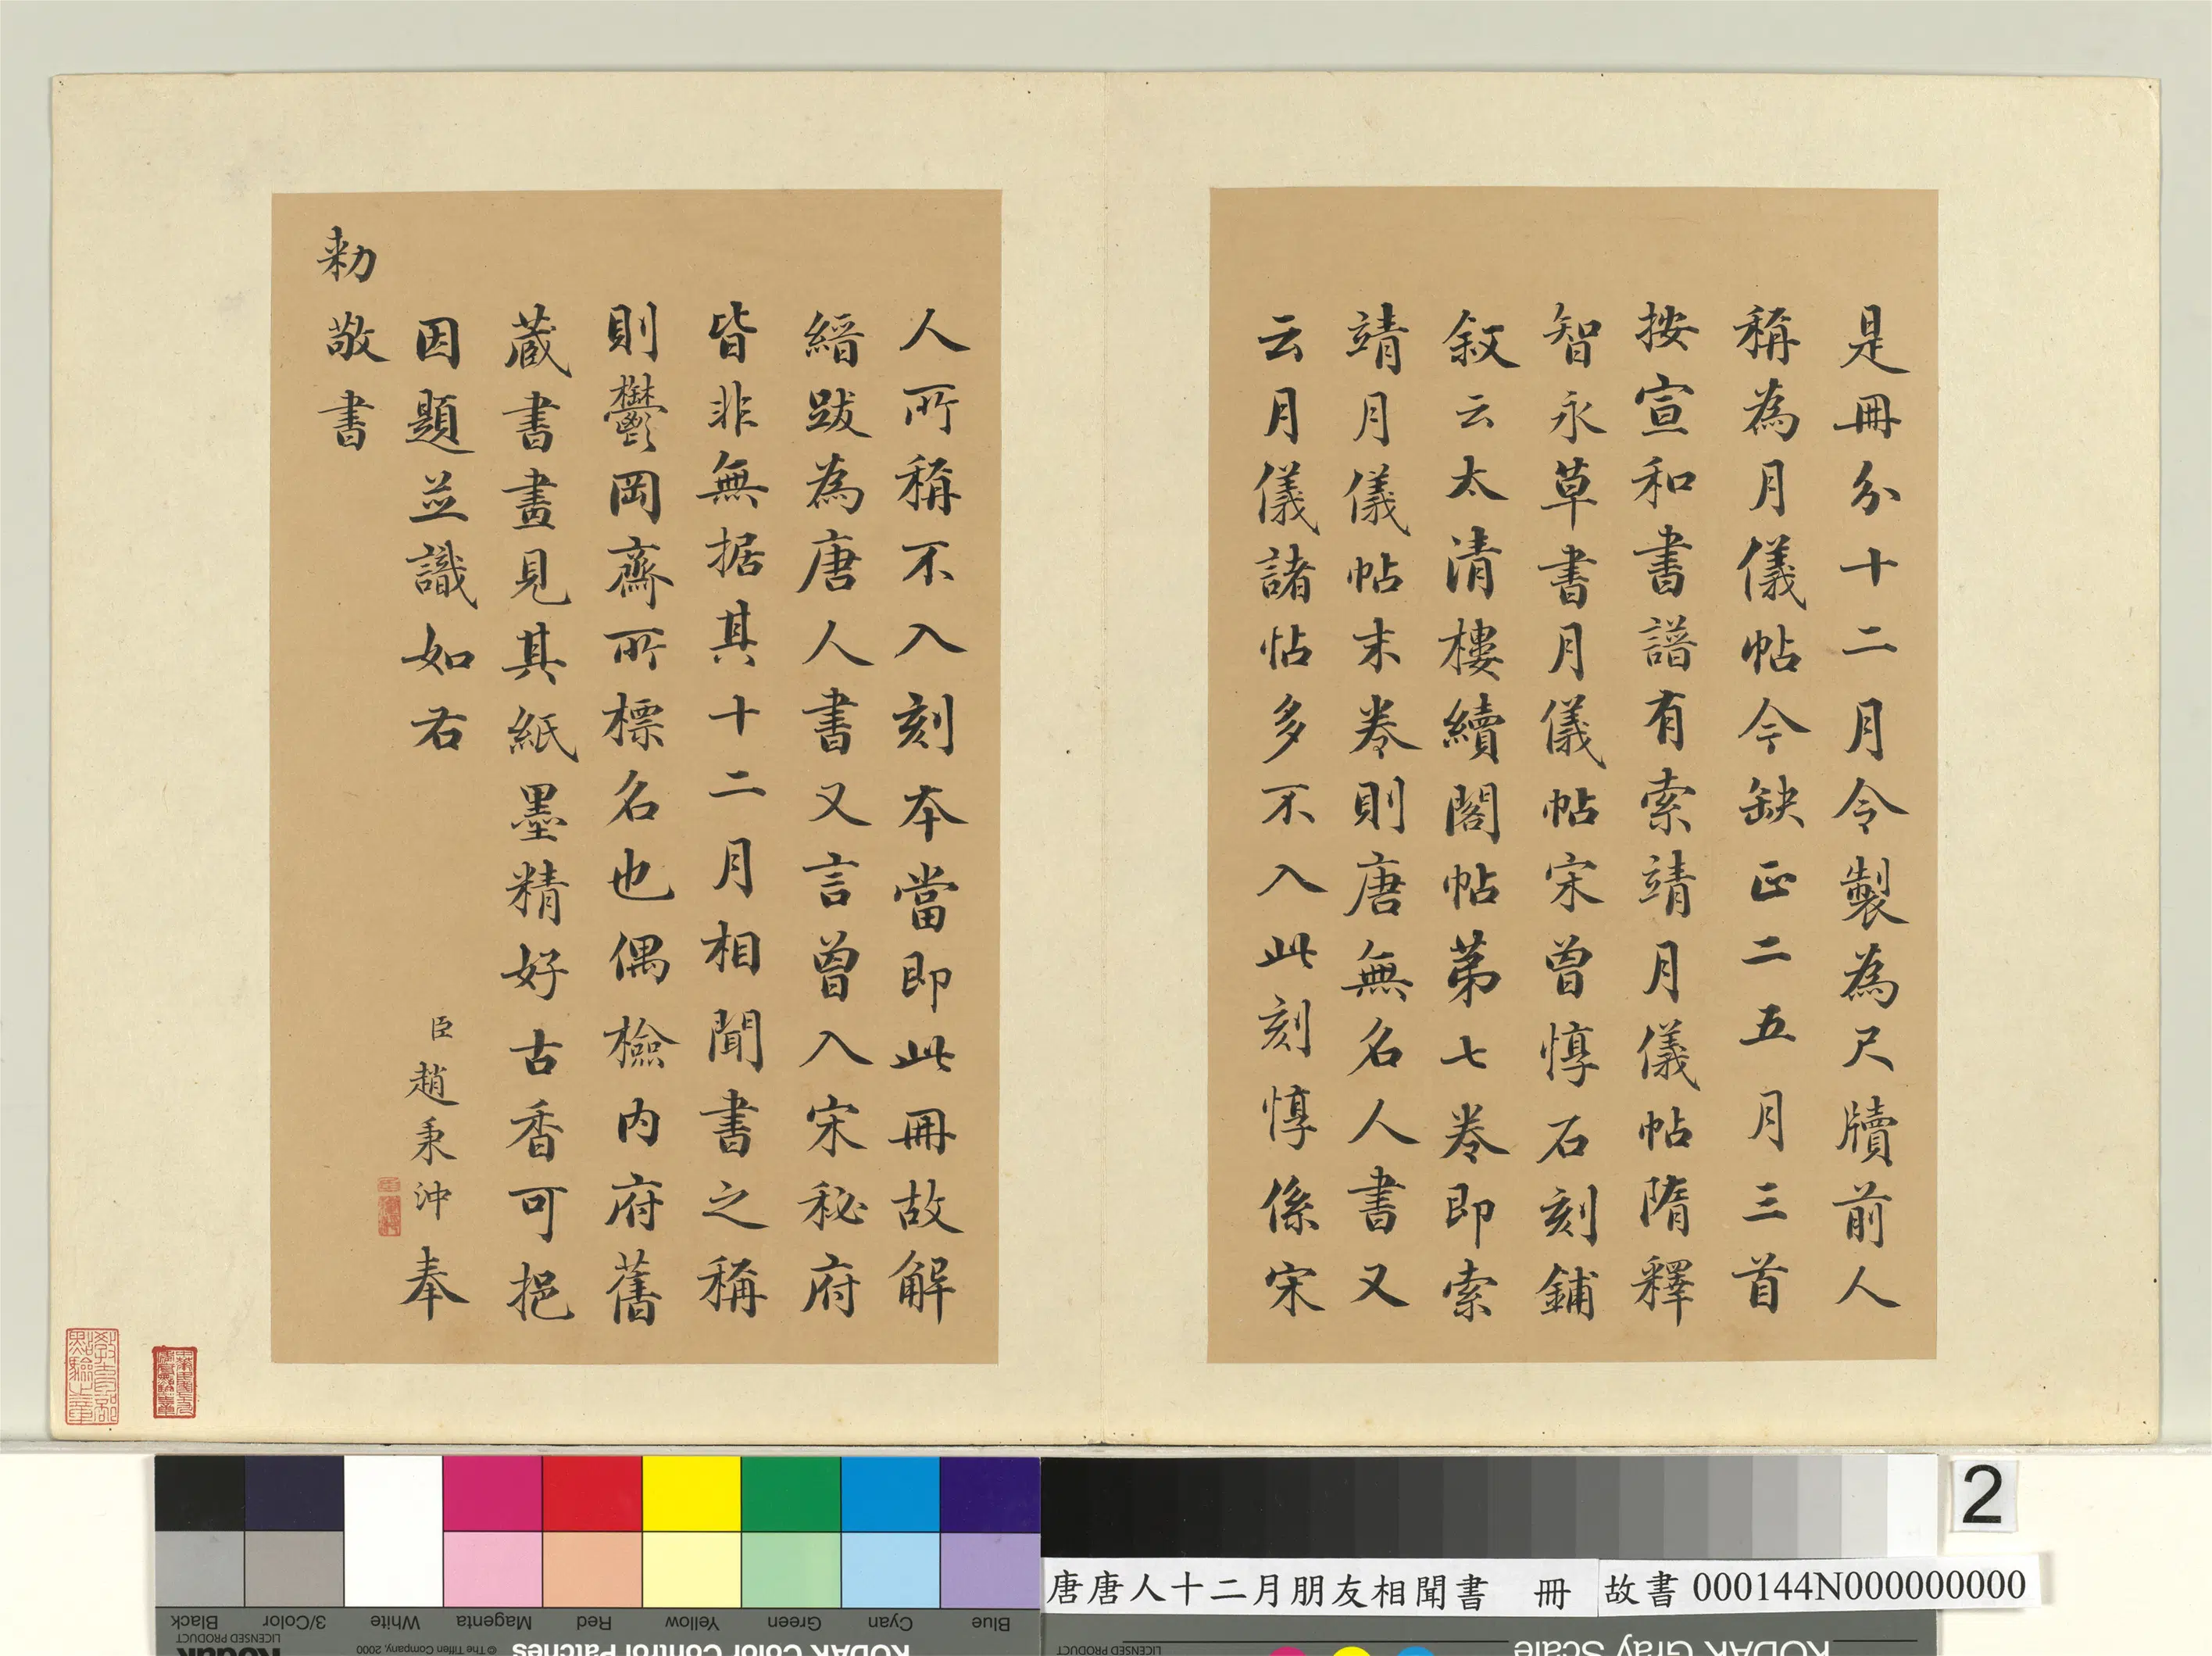 是冊分十二月令製為尺牘前人
稱為月儀帖今缺正二五月三首
按宣和書譜有索靖月儀帖隋釋
智永草書月儀帖宋曾惇石刻鋪
敘云太清樓續閣帖第七卷即索
靖月儀帖末卷則唐無名人書又
云月儀諸帖多不入此刻惇係宋
人所稱不入刻本當即此冊故解
縉跋為唐人書又言曾入宋秘府
皆非無据其十二月相聞書之稱
則鬱岡齋所標名也偶檢內府舊
蔵書畫見其紙墨精好古香可挹
因題並識如右 臣趙秉沖奉
敕敬書
2
唐唐人十二月朋友相聞書 冊 故書 000144N000000000
Black 3/Color White Magenta Red Yellow Green Cyan Blue
Kodak LICENSED PRODUCT © The Tiffen Company, 2000 KODAK Color Control Patches
LICENSED PRODUCT KODAK Gray Scale